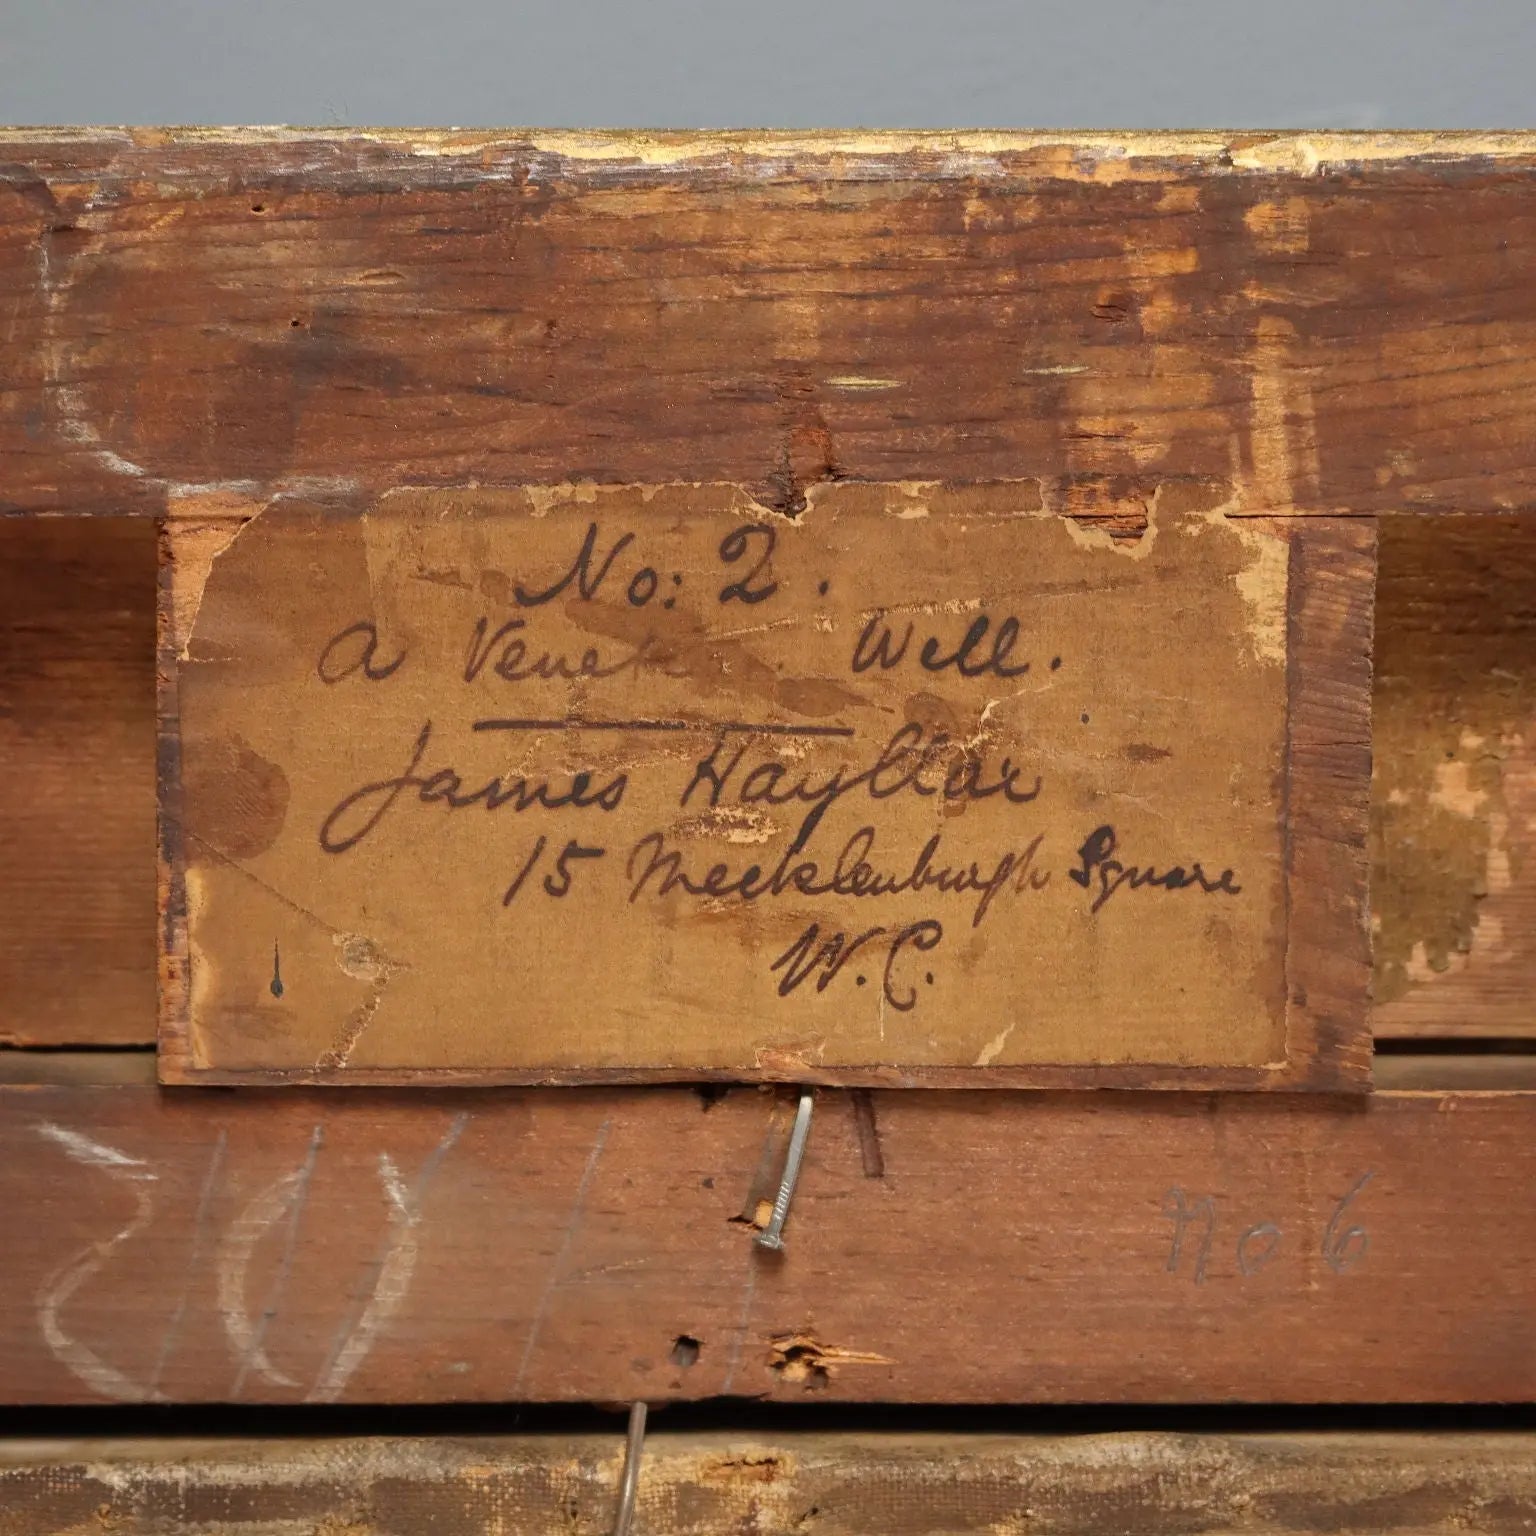 No: 2.
A Well.
James Hayllar
15 Mecklenburgh Square
W.C.
No 6